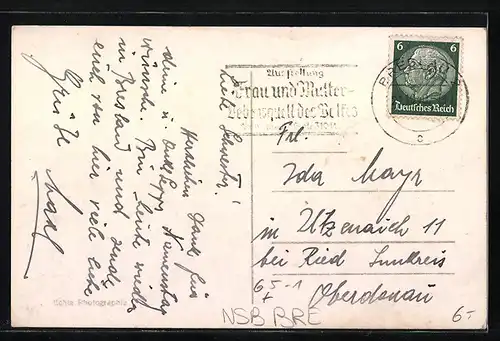 Liebe Schwester!
Herzlichen Dank für
deine u. Namenstag
wünsche. Bin heute wieder
in Breslau und sende
euch von hier viele liebe
Grüße
Echte Photographie
Ausstellung
Frau und Mutter-
Lebensquell des Volkes
6 6
Deutsches Reich
BRESLAU
c
Frl.
Ida Mayr
in Utzenaich 11
bei Ried Innkreis
Oberdonau
NSB BRE
6-